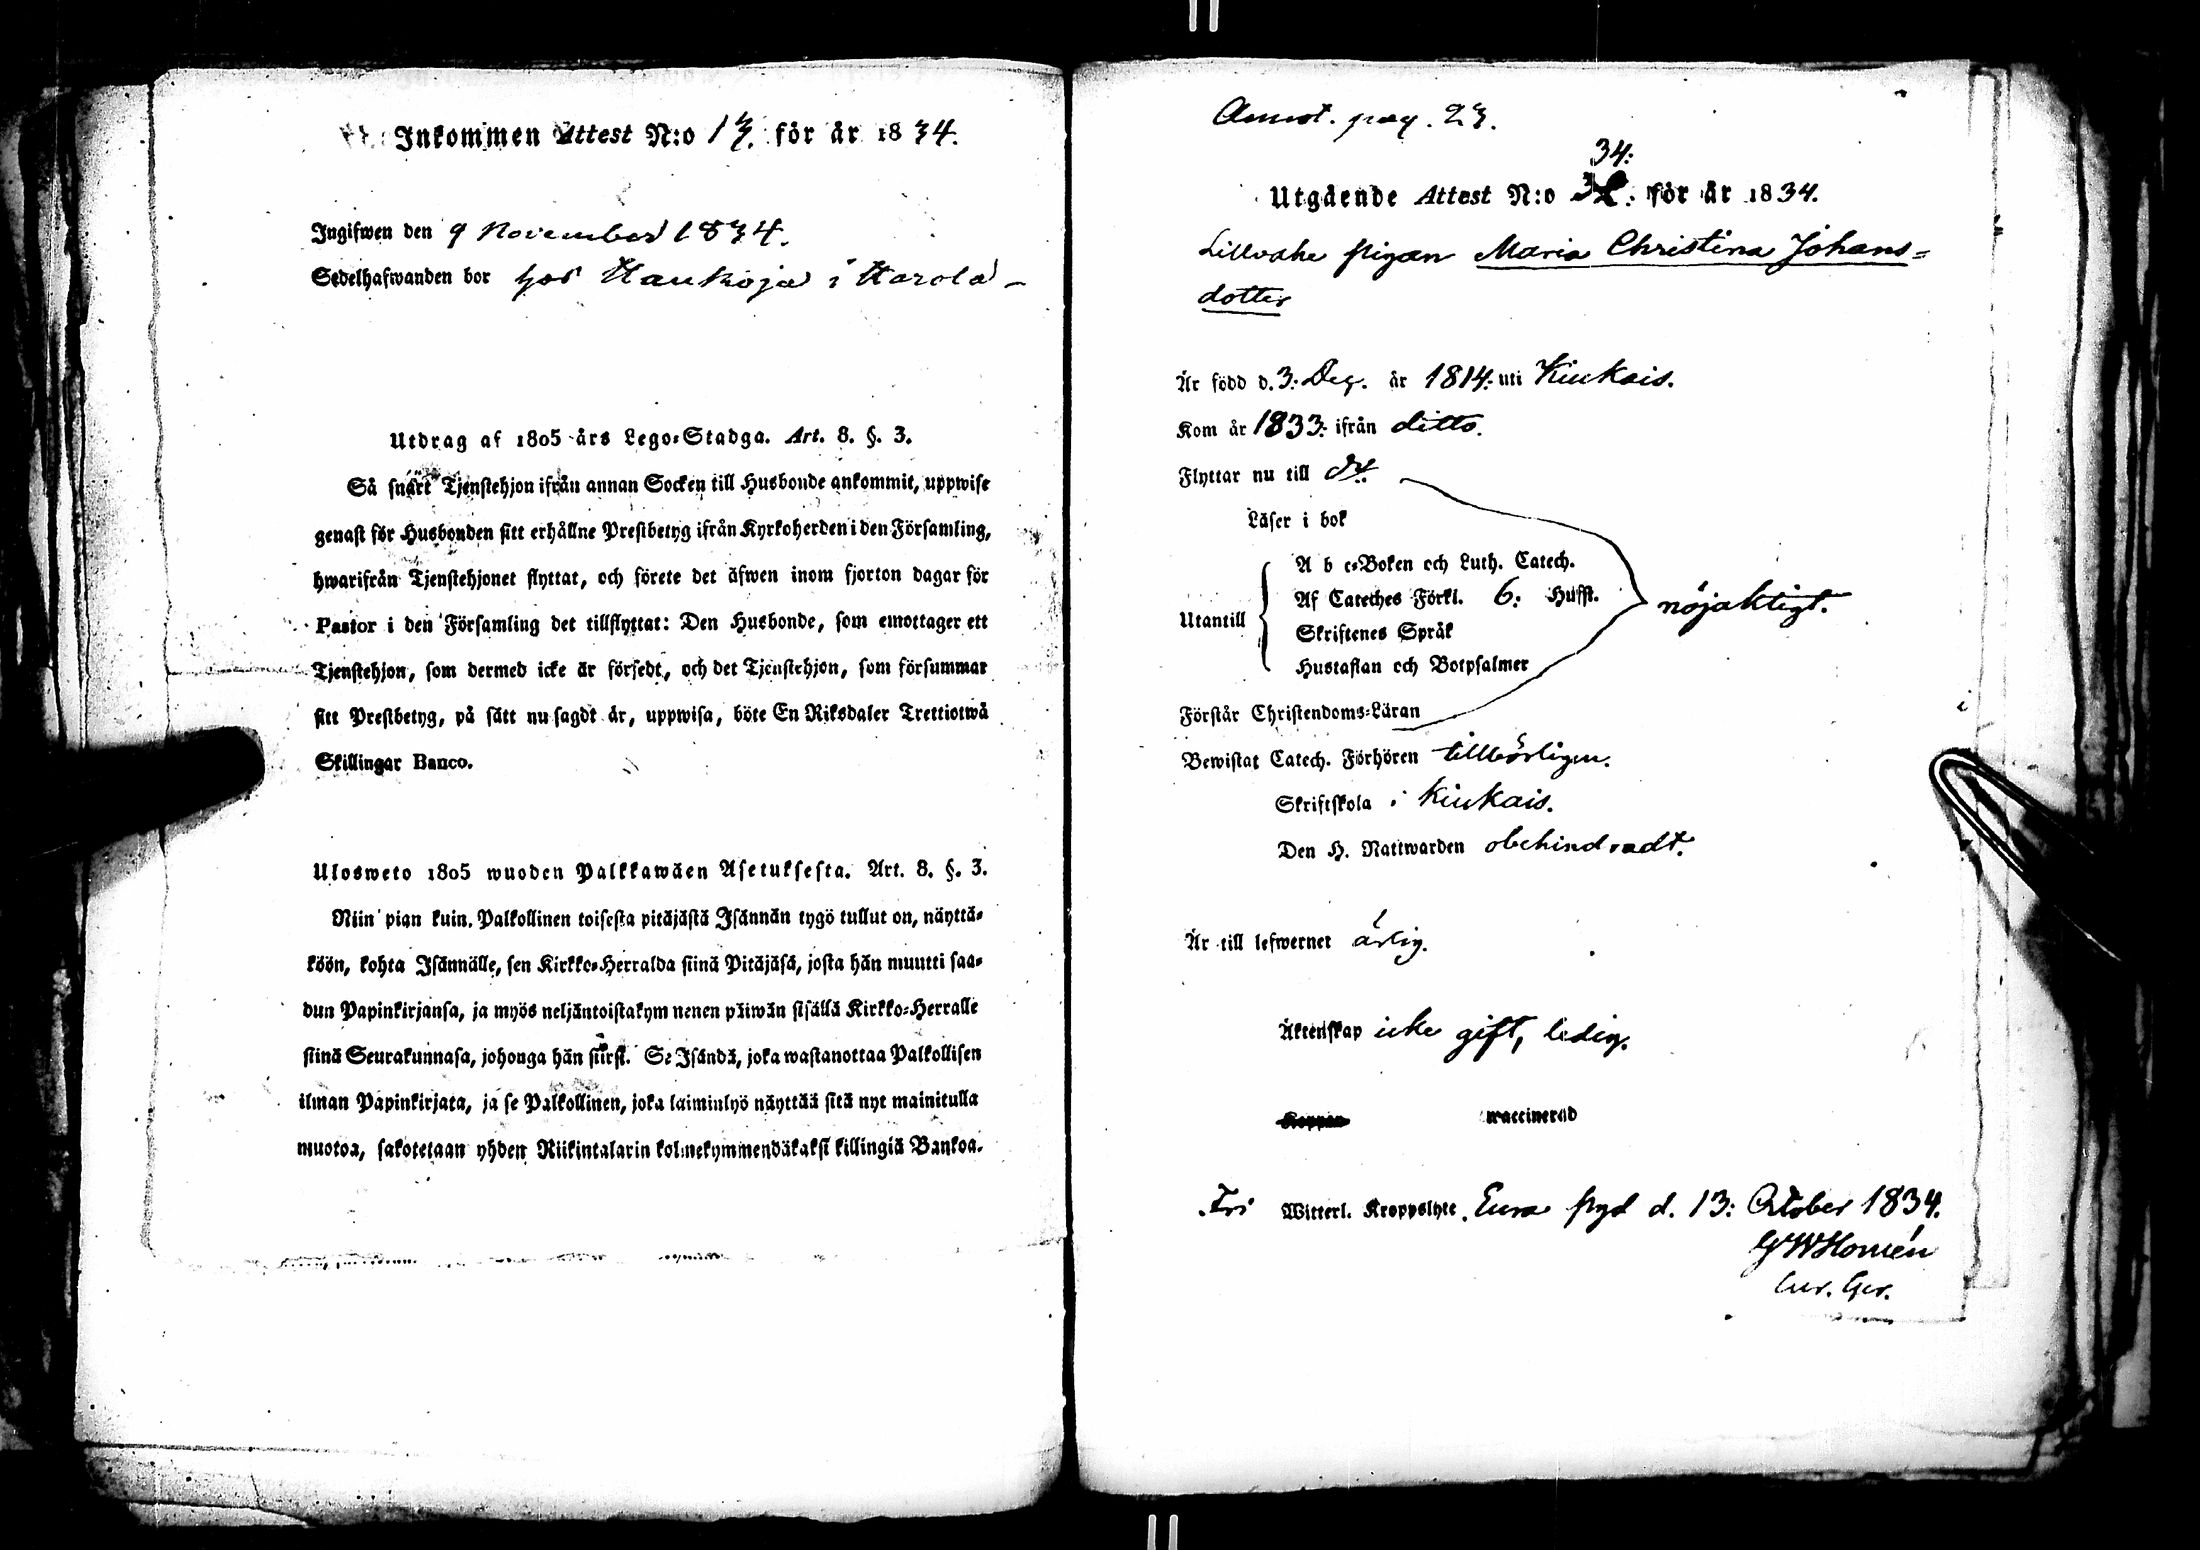 Inkommen Attest N:o 13. för år 1834.
Ingifwen den 9 November 1834.
Sedelhafwanden bor hos Haukoja i Harola
Utdrag af 1805 års Lego-Stadga. Art. 8. §. 3.
Så snart Tjenstehjon ifrån annan Socken till Husbonde ankommit, uppwise
genast för Husbonden sitt erhållne Prestbetyg ifrån Kyrkoherden i den Församling,
hwarifrån Tjenstehjonet flyttat, och förete det äfwen inom fjorton dagar för
Pastor i den Församling det tillflyttat: Den Husbonde, som emottager ett
Tjenstehjon, som dermed icke är försedt, och det Tjenstehjon, som försummar
sitt Prestbetyg, på sätt nu sagdt är, uppwisa, böte En Riksdaler Trettiotwå
Skillingar Banco.
Ulosweto 1805 wuoden Palkkawäen Asetuksesta. Art. 8. §. 3.
Niin pian kuin Palkollinen toisesta pitäjästä Isännän tygö tullut on, näyttä-
köön, kohta Isännälle, sen Kirkko-Herralda siinä Pitäjäsä, josta hän muutti saa-
dun Papinkirjansa, ja myös neljäntoistakymmenen päiwän sisällä Kirkko-Herralle
siinä Seurakunnasa, johonga hän siirsi. Se Isändä, joka wastanottaa Palkollisen
ilman Papinkirjata, ja se Palkollinen, joka laiminlyö näyttää sitä nyt mainitulla
muotoa, sakotetaan yhden Riikintalarin kolmekymmendäkaksi killingiä Bankoa.
Annot. pag. 23.
34:
Utgående Attest N:o för år 1834.
pigan Maria Christina Johans=
dotter
Är född d. 3: Dec. år 1814: uti Kiukais.
Kom år 1833: ifrån ditto.
Flyttar nu till do.
Läser i bok
A b c-Boken och Luth. Catech.
Af Cateches Förkl. 6: Hufst.
Utantill
Skriftenes Språk
Hustaflan och Botpsalmer
nöjaktigt.
Förstår Christendoms-Läran
Bewistat Catech. Förhören tillbörligen.
Skriftskola i Kiukais.
Den H. Nattwarden obehindradt.
Är till lefwernet ärlig.
Äktenskap icke gift, ledig.
Koppor waccinerad
Fri Witterl. Kroppslyte. Eura pgd d. 13: October 1834.
G W Homén